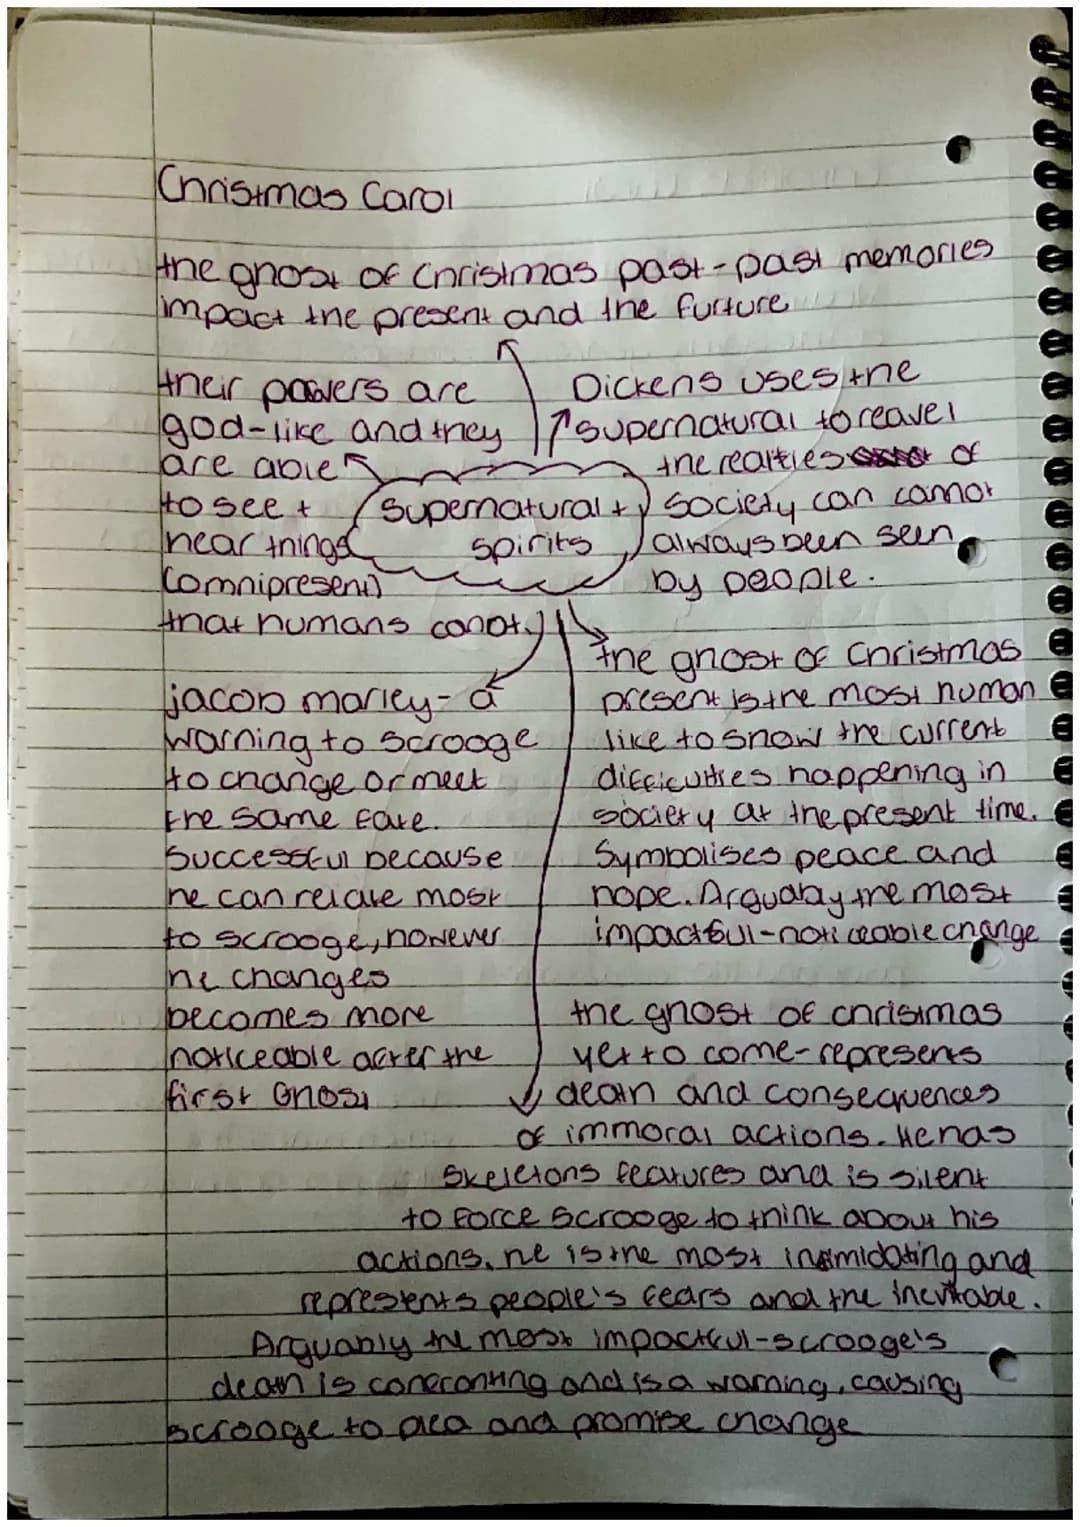 Christmas Carol
the ghost of Christmas past - past memories
impact the present and the furture
their powers are
god-like and they
are able
to see +
hear things
(omnipresent)
that humans conot.
Dickens uses the
supernatural to reavel
the realties of
society can cannot
always been seen
by people.
supernatural +
spirits
jacob marley - a
warning to scrooge
to change or meet
the same fate.
Successful because
he can relate most
to scrooge, however
he changes
becomes more
noticeable after the
first Ghost
the ghost of Christmas
present is the most human
like to show the current
difficulties happening in
society at the present time.
Symbolises peace and
hope. Arguably the most
impactful - noticeable change
the ghost of christmas
yet to come - represents
death and consequences
of immoral actions. He has
skeletons features and is silent
to force scrooge to think about his
actions. he is the most intimidating and
represents people's fears and the inevitable.
Arguably the most impactful - scrooge's
death is and is a warning, causing
scrooge to plea and promise change